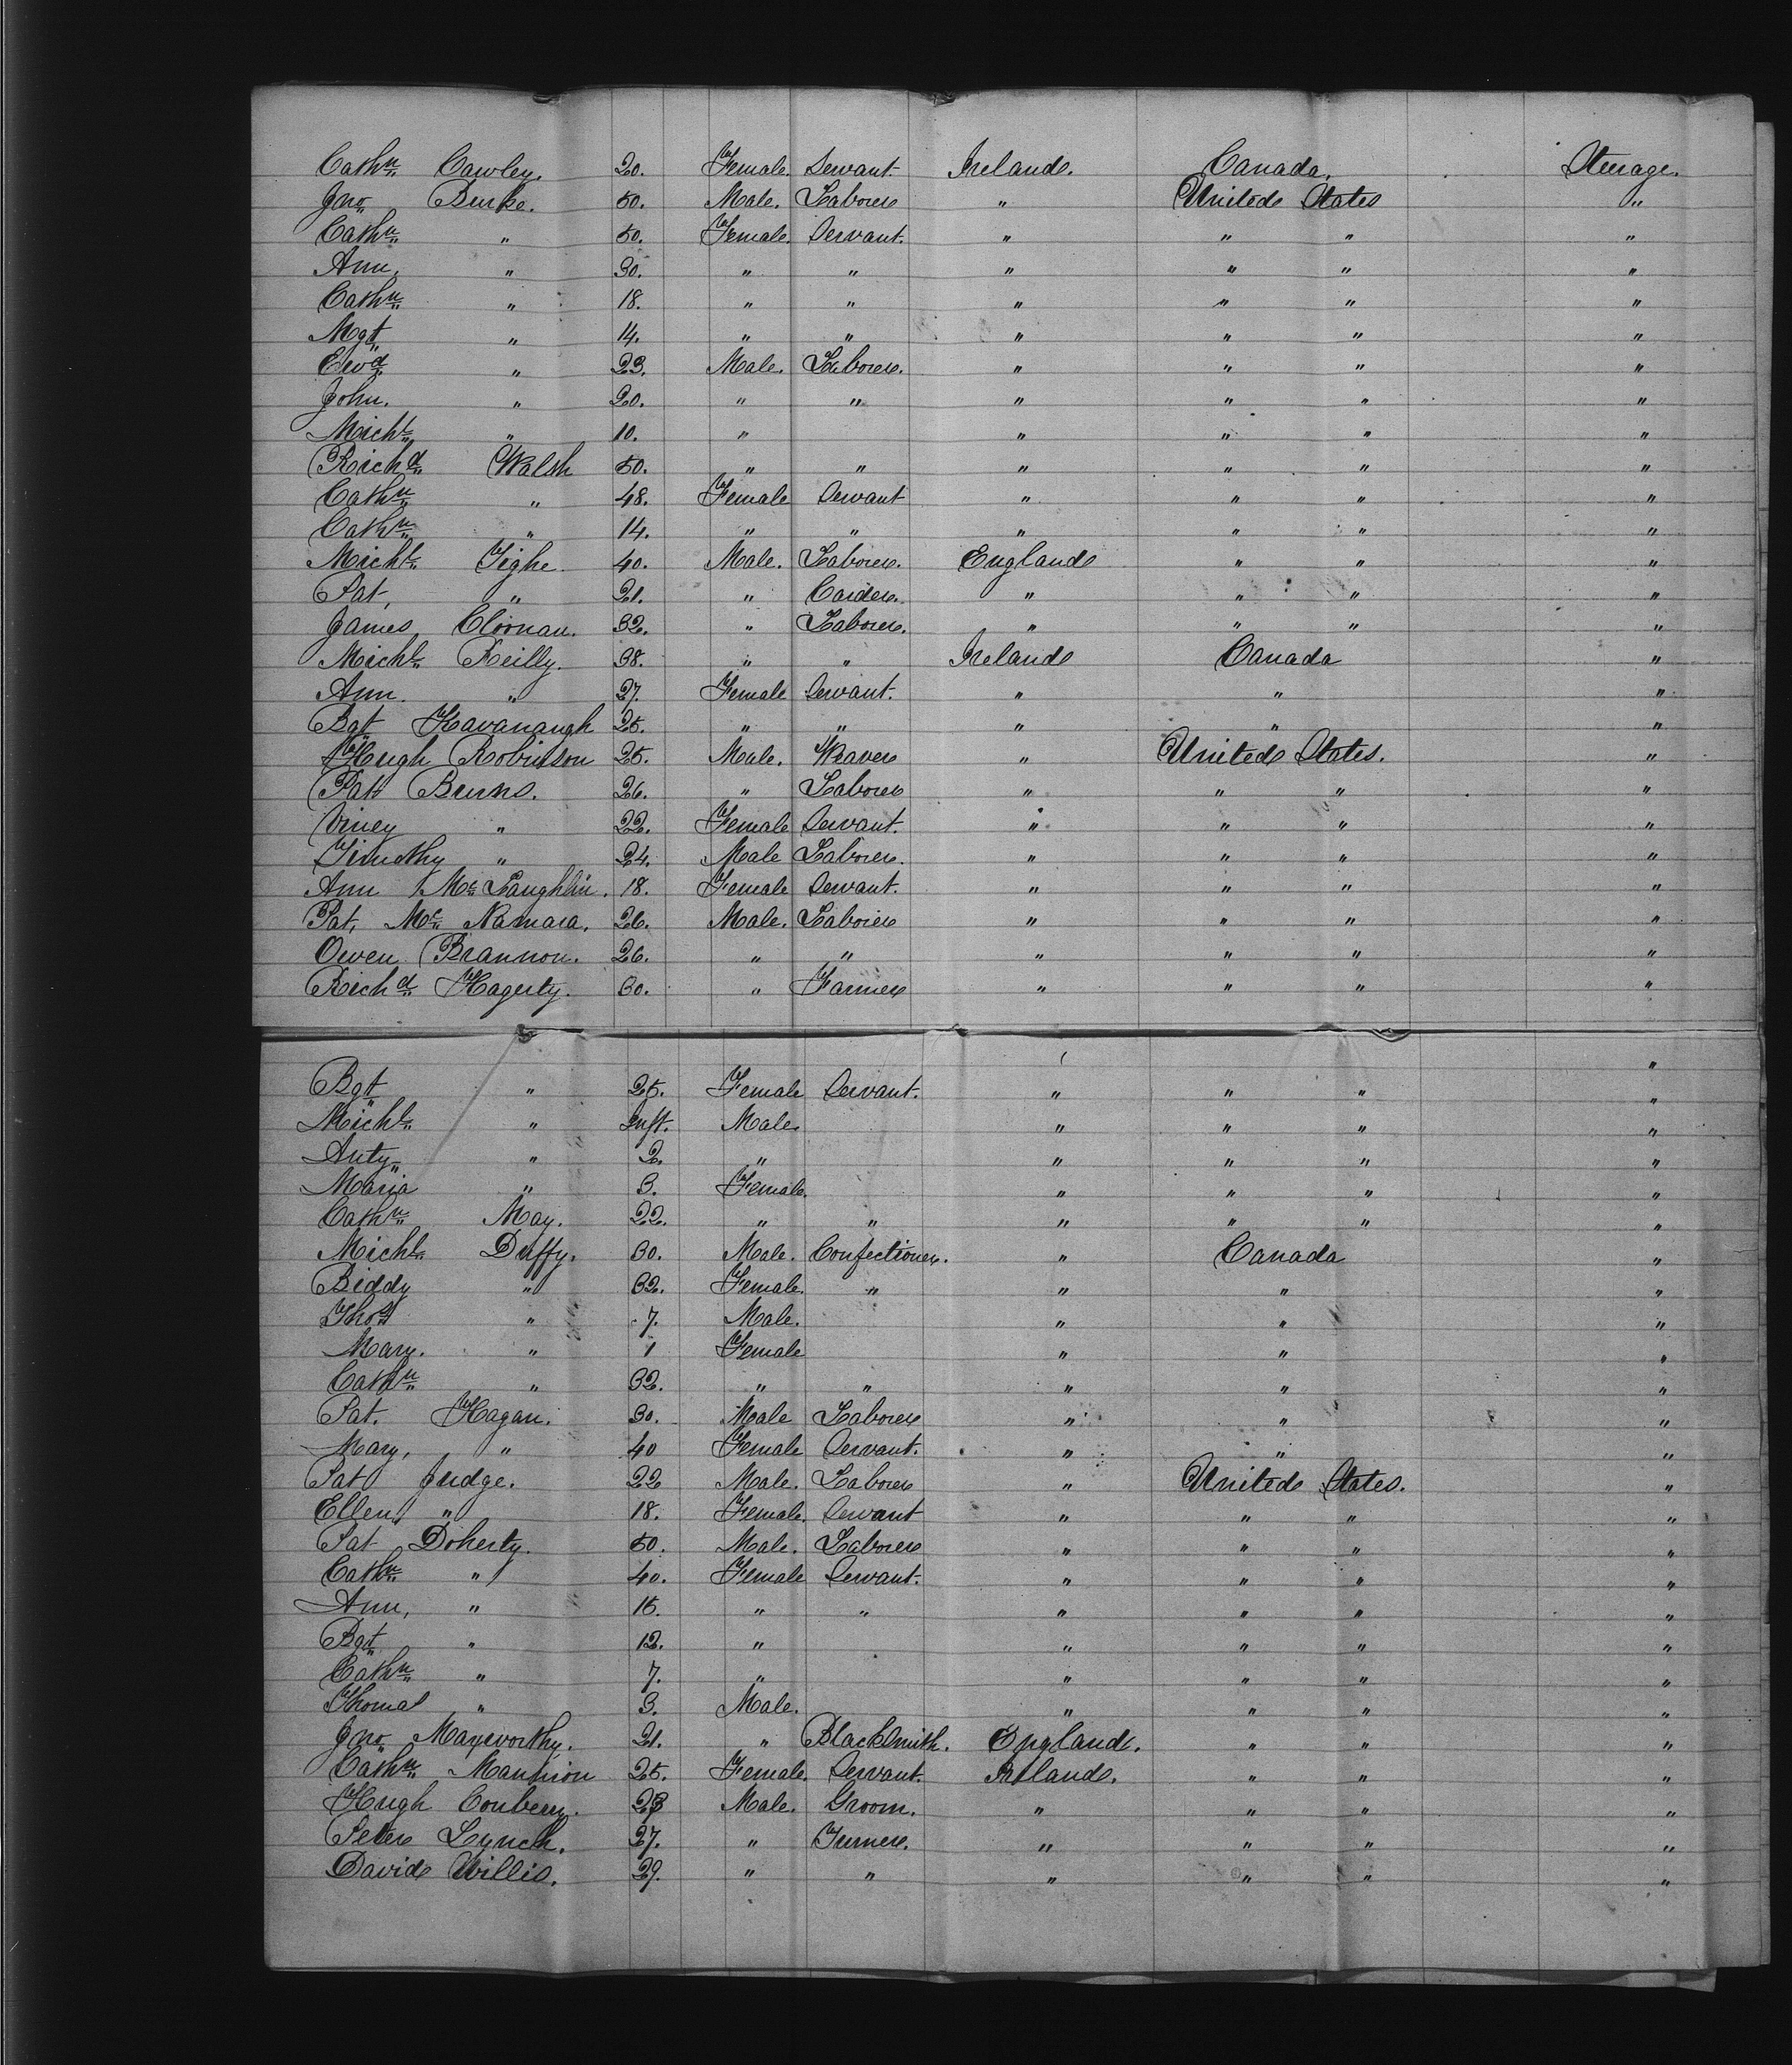 Cathn Cawley. 20. Female. Servant Ireland. Canada. Steerage.
Jno Burke. 50. Male. Laborer " United States "
Cathn " 50. Female. Servant. " " " "
Ann, " 30. " " " " " "
Cathn " 18. " " " " " "
Mgt " 14. " " " " " "
Ewd " 23. Male. Laborer. " " " "
John. " 20. " " " " " "
Michl " 10. " " " " "
Richd Walsh 50. " " " " " "
Cathn " 48. Female Servant " " " "
Cathn " 14. " " " " " "
Michl Tighe 40. Male. Laborer. England " " "
Pat, " 21. " Carder. " " " "
James Cloonan. 32. " Laborer. " " " "
Michl Reilly. 38. " " Ireland Canada "
Ann. " 27. Female Servant. " " "
Bgt Kavanaugh 25. " " " " "
Hugh Robinson 25. Male. Weaver " United States. "
Pat Burns. 26. " Laborer " " " "
Viney " 22. Female Servant. " " " "
Timothy " 24. Male Laborer. " " " "
Ann McLaughlin. 18. Female Servant. " " " "
Pat, Mc Namara, 26. Male. Laborer " " " "
Owen Brannon. 26. " " " " " "
Richd Hagerty. 30. " Farmer " " " "
"
Bgt " 25. Female Servant. " " " "
Michl " Inft. Male. " " " "
Anty " 2. " " " " "
Maria " 3. Female. " " " "
Cathn May. 22. " " " " " "
Michl Duffy. 30. Male. Confectioner. " Canada "
Biddy " 32. Female. " " " "
Thos " 7. Male. " " "
Mary. " 1 Female " " "
Cathn " 32. " " " " "
Pat. Hagan. 30. Male Laborer " " "
Mary, " 40 Female Servant. " " "
Pat Judge. 22 Male. Laborer " United States. "
Ellen " 18. Female. Servant " " " "
Pat Doherty. 50. Male. Laborer " " " "
Cathn " 40. Female Servant. " " " "
Ann, " 15. " " " " " "
Bgt " 12. " " " " "
Cathn " 7. " " " " "
Thomas " 3. Male. " " " "
Jno Maxworthy. 21. " Blacksmith. England. " " "
Cathn Mannion 25. Female. Servant. Ireland. " " "
Hugh Conbery. Male. Groom. " " " "
Peter Lynch. 27. " Turner. " " " "
David Willis. 29. " " " " " "